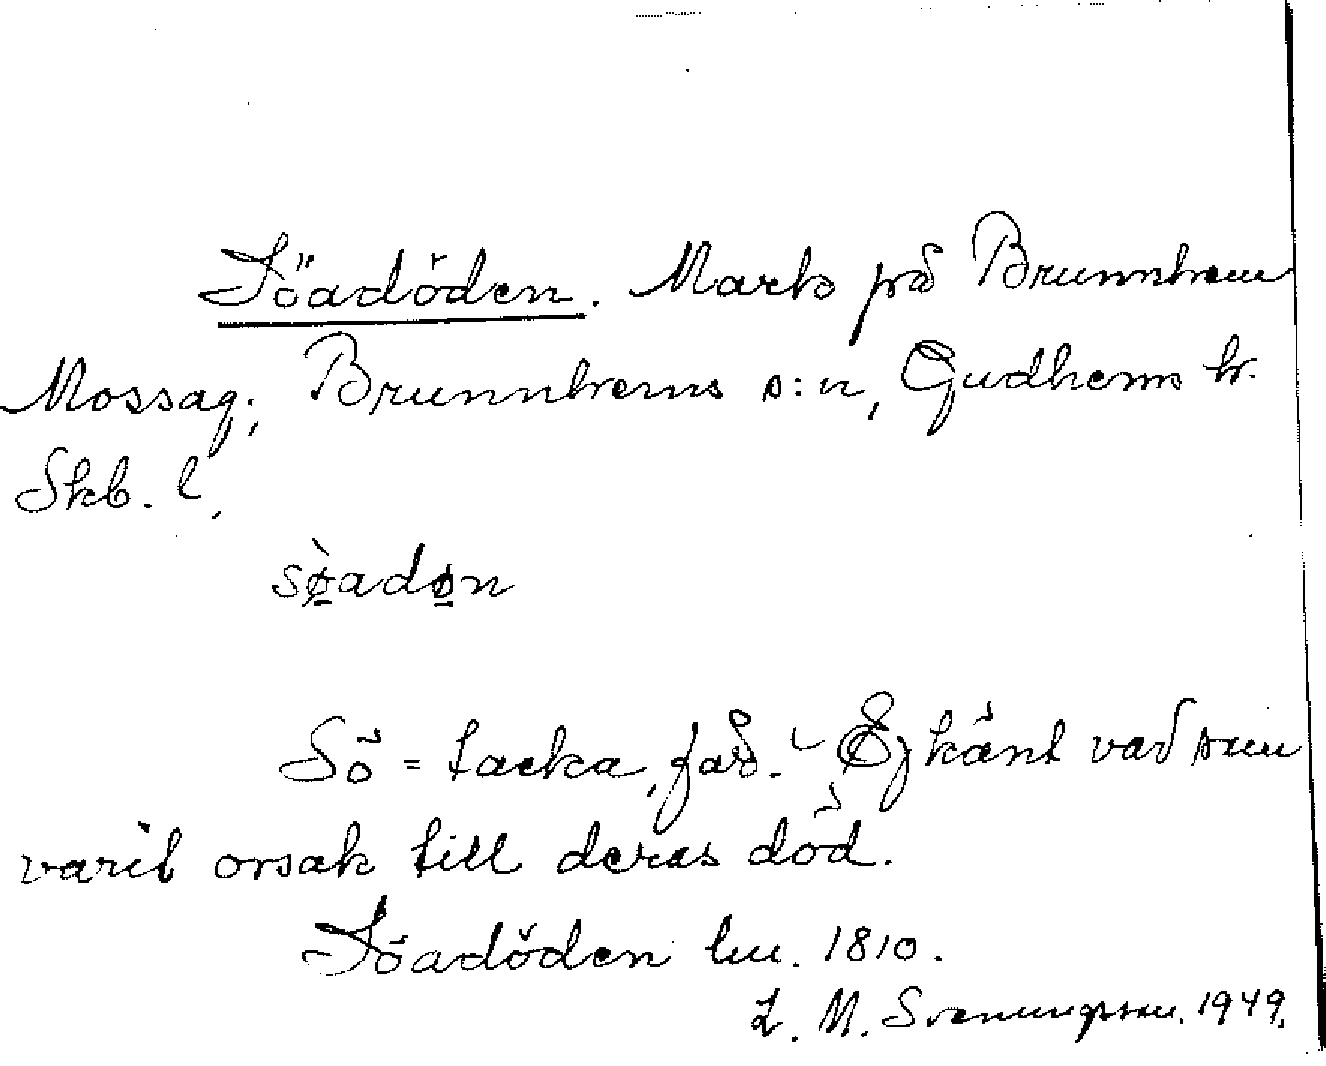 Söadöden. Mark på Brunnhem
Mossag., Brunnhems s:n, Gudhems hr.
Skb. l.
sø̀adøn
Sö = tacka, får. - Ej känt vad som
varit orsak till deras död.
Söadöden lm. 1810.
L. M. Svenungsson. 1949.